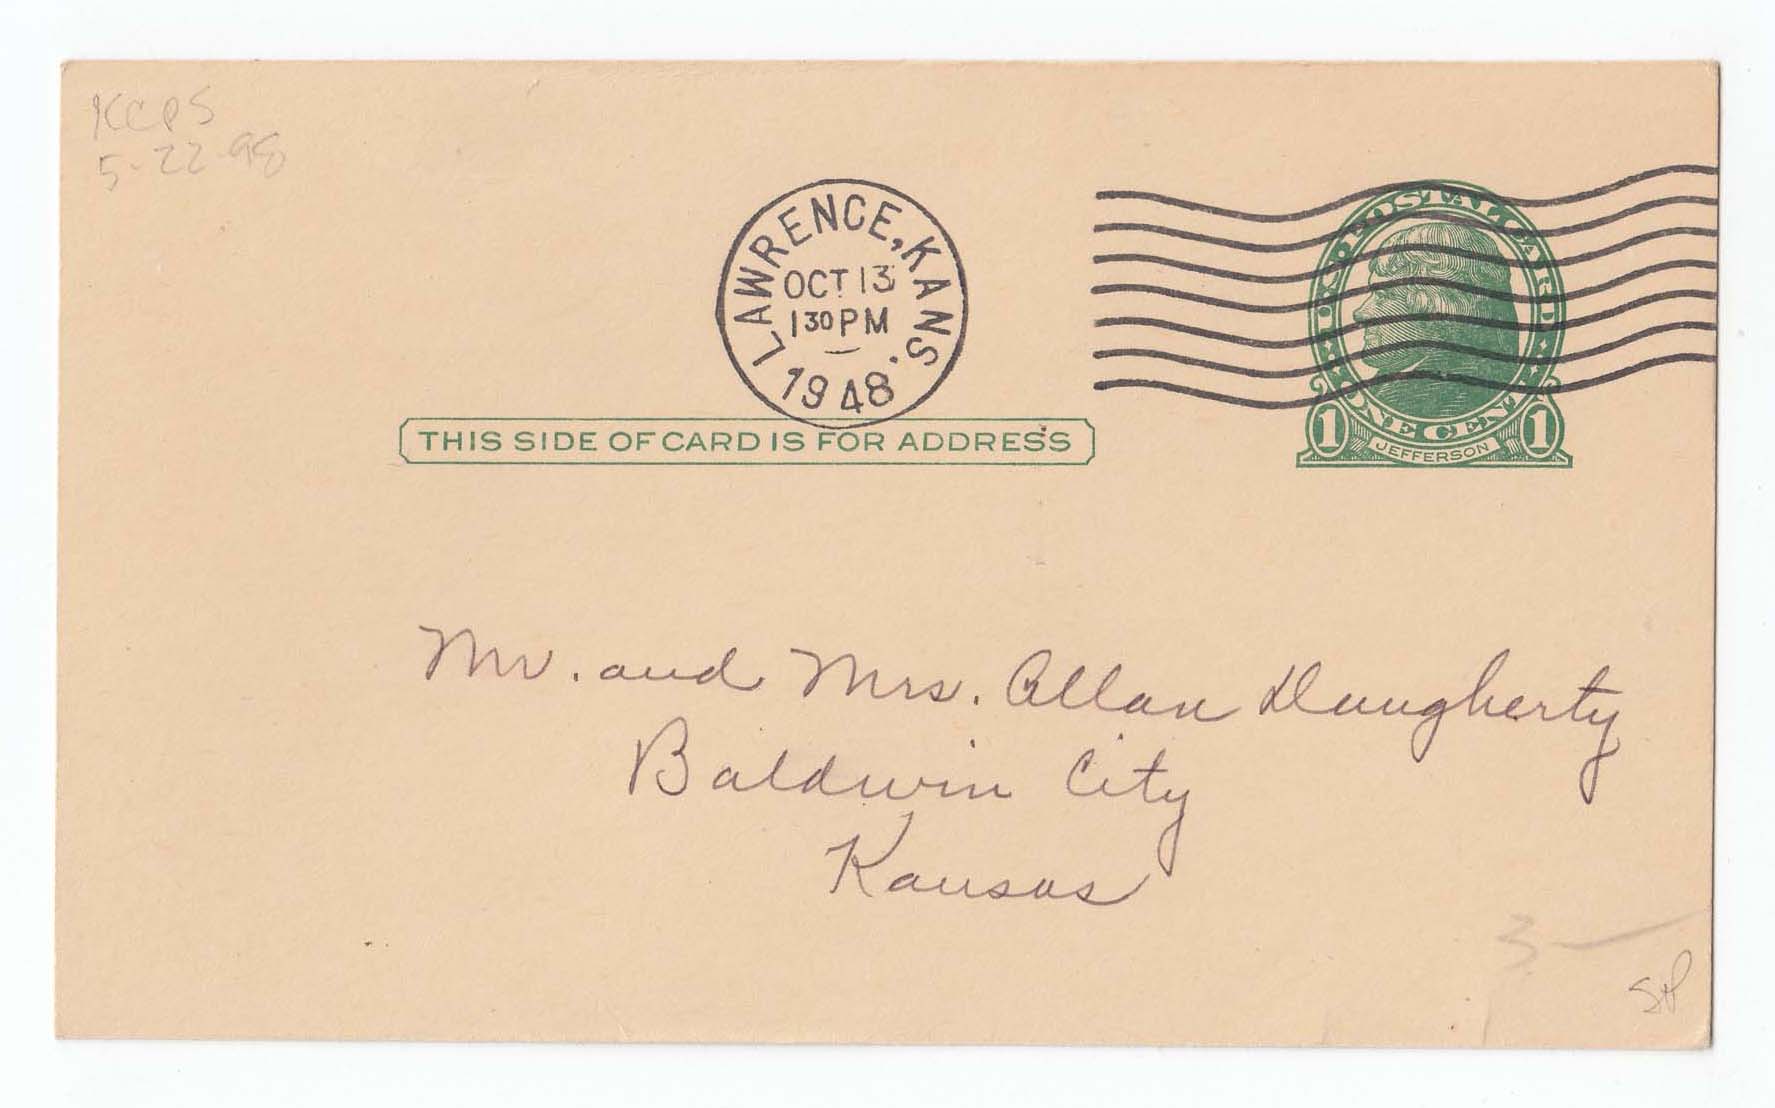 KCPS
5-22-98
LAWRENCE, KANS.
OCT 13
1 30 PM
1948
U.S. POSTAL CARD
ONE CENT
1 JEFFERSON 1
THIS SIDE OF CARD IS FOR ADDRESS
Mr. and Mrs. Allan Daugherty
Baldwin City
Kansas
3—